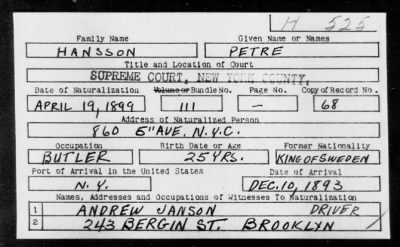 H 525
Family Name Given Name or Names
HANSSON PETRE
Title and Location of Court
SUPREME COURT, NEW YORK COUNTY.
Date of Naturalization Volume or Bundle No. Page No. Copy of Record No.
APRIL 19, 1899 111 — 68
Address of Naturalized Person
860 5" AVE. N.Y.C.
Occupation Birth Date or Age Former Nationality
BUTLER 25 YRS. KING OF SWEDEN
Port of Arrival in the United States Date of Arrival
N.Y. DEC. 10, 1893
Names, Addresses and Occupations of Witnesses To Naturalization
1 ANDREW JANSON DRIVER
2 243 BERGIN ST. BROOKLYN